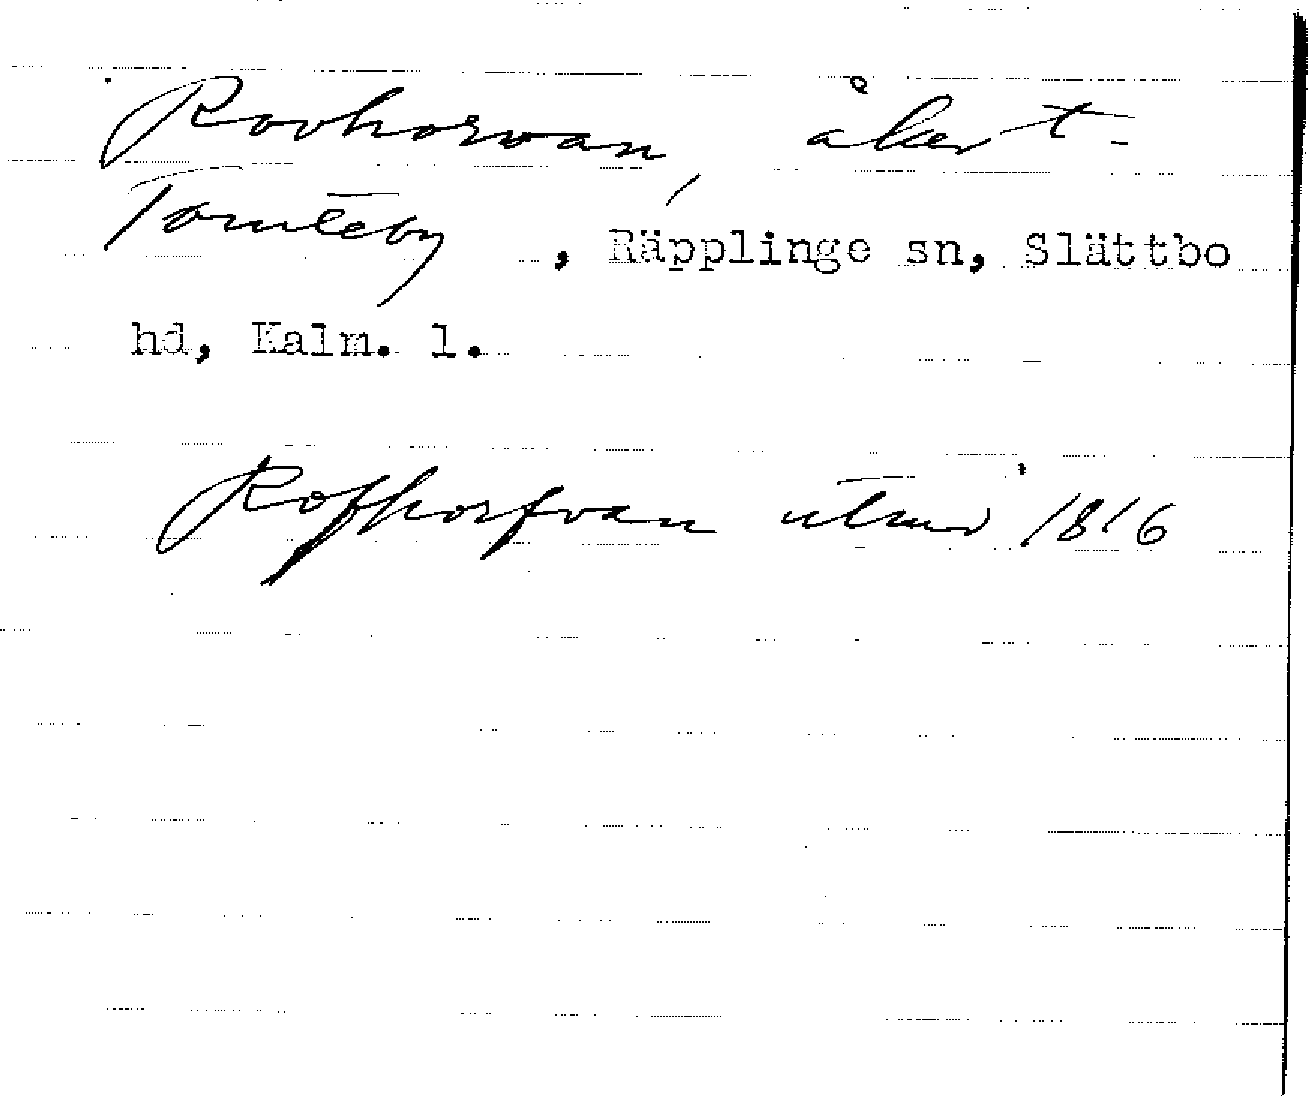 Rovhorvan, åker t.
Tomteby, Räpplinge sn, Slättbo
hd, Kalm. l.
Rofhorfvan 1816